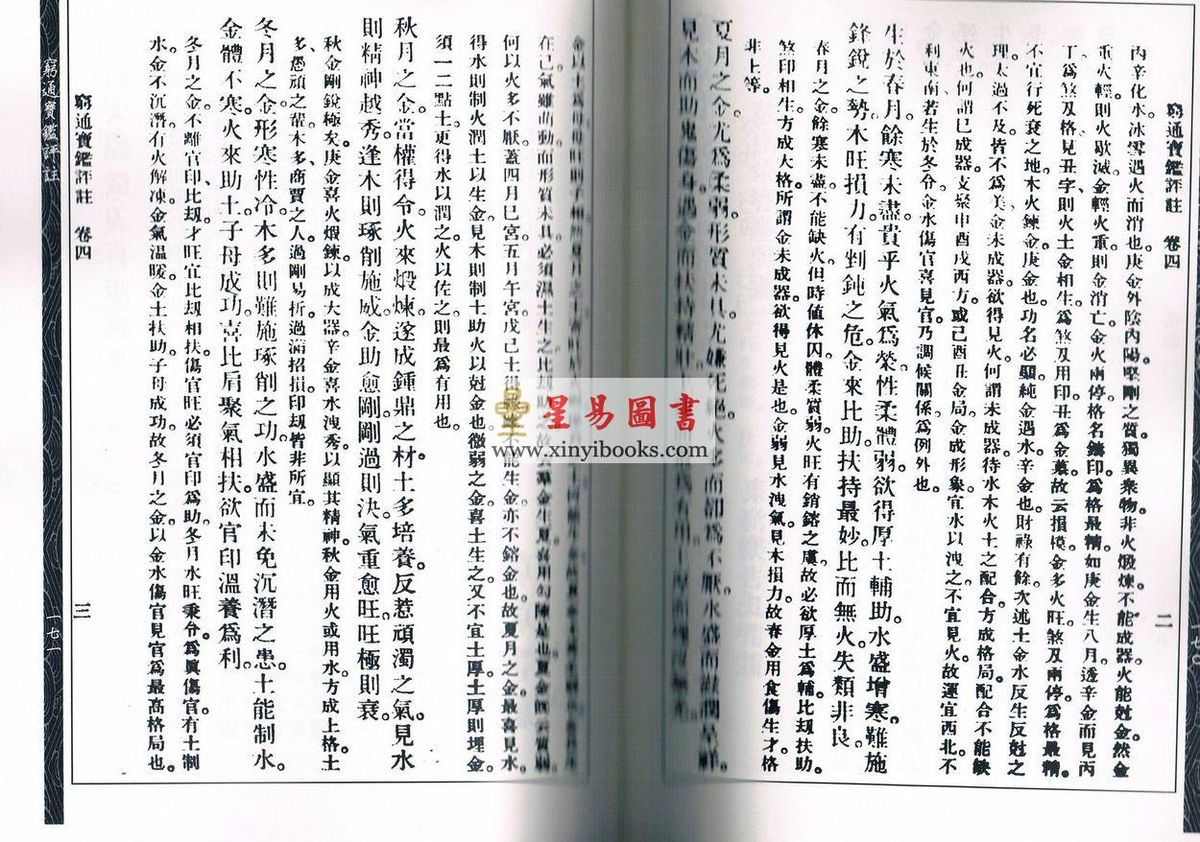 窮通寶鑑評註　卷四
二
丙辛化水冰雪遇火而消也。庚金外陰內陽堅剛之質獨異衆物非火煅煉不能成器火能尅金然金
重火輕則火歇滅金輕火重則金消亡金火兩停格名鑄印爲格最精如庚金生八月透辛金而見丙
丁爲煞及格見丑字則火土金相生爲煞及用印。丑爲金墓故云損摸金多火旺煞及兩停爲格最精。
不宜行死衰之地木火鍊金庚金也功名必顯純金遇水辛金也財祿有餘次述土金水反生反尅之
理太過不及皆不爲美金未成器欲得見火何謂未成器待水木火土之配合方成格局。配合不能缺
火也何謂已成器支聚申酉戌西方。或巳酉丑金局。金成形象宜水以洩之不宜見火。故運宜西北不
利東南若生於冬令。金水傷官喜見官乃調候關係爲例外也。
生於春月餘寒未盡。貴乎火氣爲榮。性柔體弱。欲得厚土輔助水盛增寒難施
鋒銳之勢木旺損力有剉鈍之危金來比助扶持最妙比而無火失類非良。
春月之金餘寒未盡不能缺火但時値休囚體柔質弱火旺有銷鎔之虞故必欲厚土爲輔比刼扶助。
煞印相生方成大格所謂金未成器欲得見火是也金弱見水洩氣見木損力故春金用食傷生才格
非上等。
夏月之金尤爲柔弱形質未具尤嫌死絕火多而卻爲不厭水盛而滋潤呈祥
見木而助鬼傷身遇金而扶持精壯
在己氣雖萌動而形質未具必須濕土生之比刼助之
何以火多不厭蓋四月巳宮五月午宮戊己土得祿 能生金亦不鎔金也故夏月之金最喜見水
得水則制火潤土以生金見木則制土助火以尅金也微弱之金喜土生之又不宜土厚土厚則埋金
須一二點土更得水以潤之火以佐之則最爲有用也。
秋月之金當權得令火來煅煉遂成鍾鼎之材土多培養反惹頑濁之氣見水
則精神越秀逢木則琢削施威金助愈剛剛過則決氣重愈旺旺極則衰
秋金剛銳極矣。庚金喜火煅鍊以成大器辛金喜水洩秀以顯其精神秋金用火或用水方成上格。土
多愚頑之輩木多商賈之人過剛易折過滿招損印刼皆非所宜。
冬月之金形寒性冷木多則難施琢削之功。水盛而未免沉潛之患。土能制水。
金體不寒。火來助土子母成功。喜比肩聚氣相扶欲官印溫養爲利。
冬月之金不離官印比刼才旺宜比刼相扶傷官旺必須官印爲助。冬月水旺秉令爲眞傷官有土制
水。金不沉潛有火解凍金氣温暖金土扶助子母成功故冬月之金以金水傷官見官爲最高格局也。
窮通寶鑑評註　卷四
三
窮通寶鑑評註
一七一
星易圖書
www.xinyibooks.com